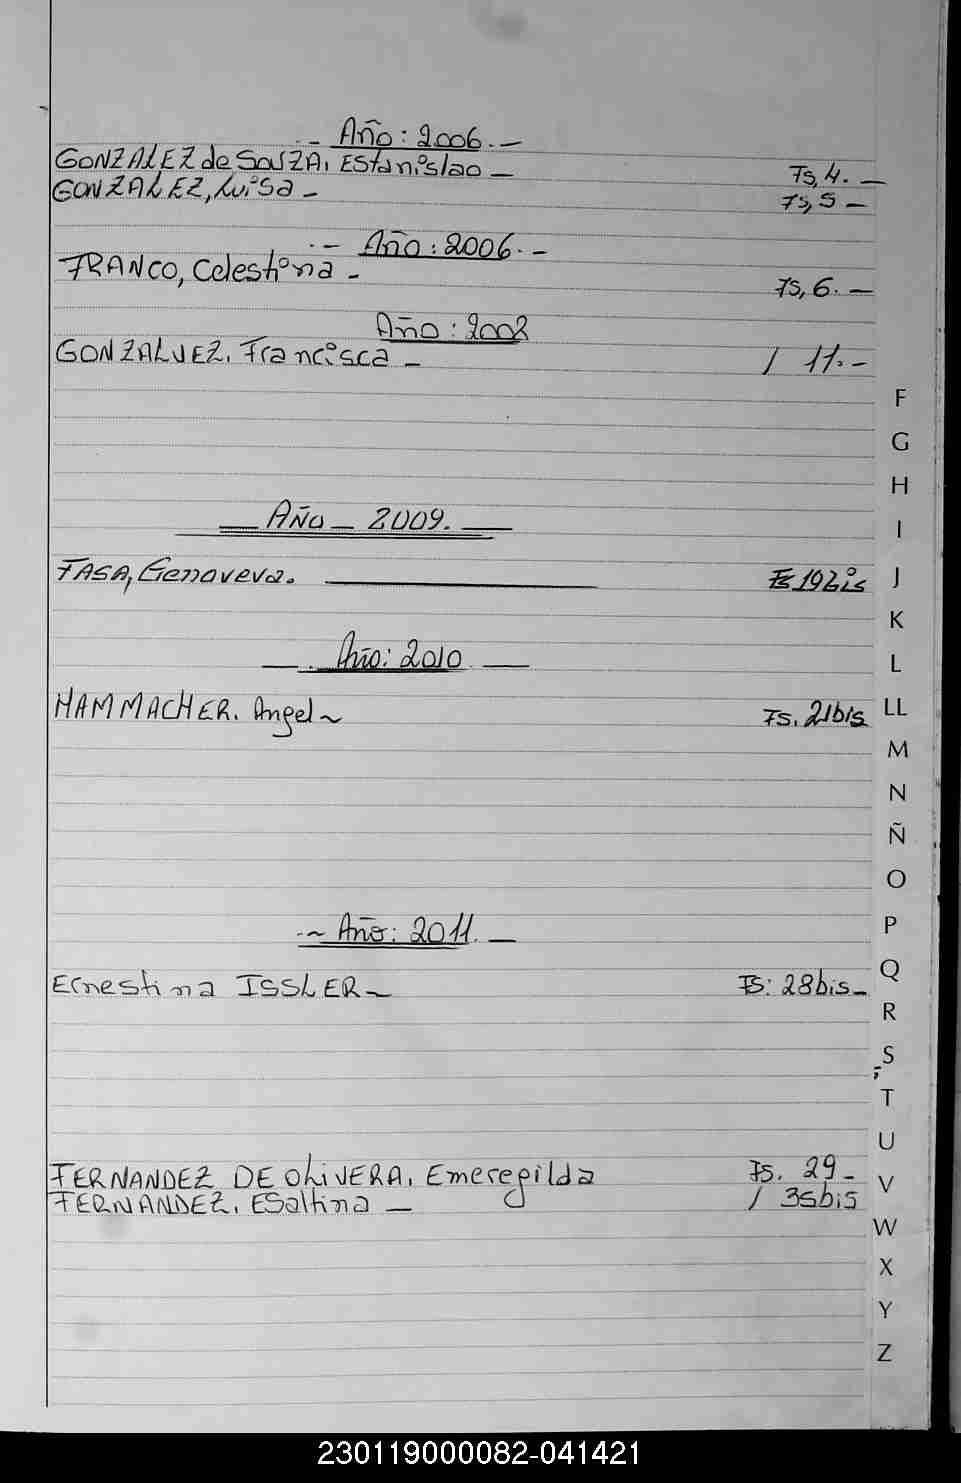 - Año: 2006. -
GONZALEZ de SOUZA, Estanislao - Fs, 4. -
GONZALEZ, Luisa - Fs, 5 -
. - Año: 2006. -
FRANCO, Celestina - Fs, 6. -
Año: 2008
GONZALVEZ. Francisca - / 11. -
F
G
H
— AÑO — 2009. —
I
FASA, Genoveva. — Fs 19bis
J
K
— . Año: 2010 —
L
HAMMACHER. Angel ~ Fs. 21bis
LL
M
N
Ñ
O
.~ Año: 2011. —
P
Q
Ernestina ISSLER - Fs: 28bis -
R
S
T
U
FERNANDEZ DE OLIVERA, Emeregilda Fs. 29 -
V
FERNANDEZ. ESaltina - / 35bis
W
X
Y
Z
230119000082-041421